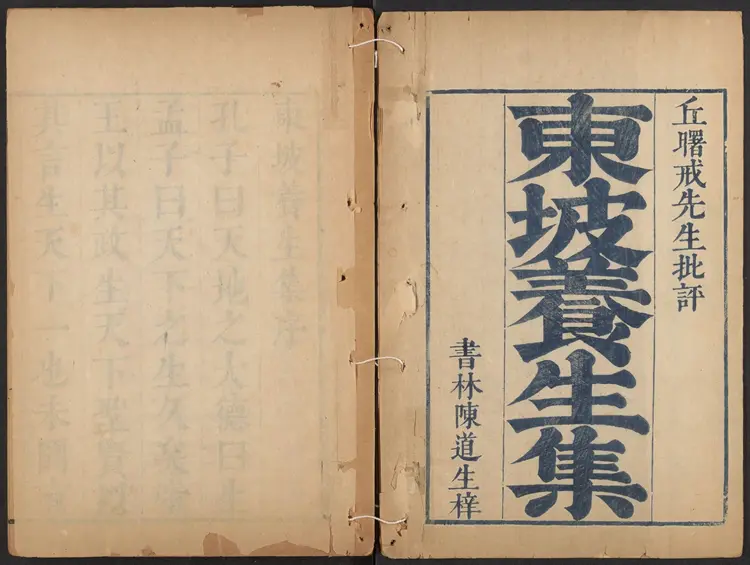 丘曙戒先生批評
東坡養生集
書林陳道生梓
東坡養生集序
孔子曰天地之大德曰生
孟子曰天下之生久矣
王以其政生天下聖賢以
其言生天下一也